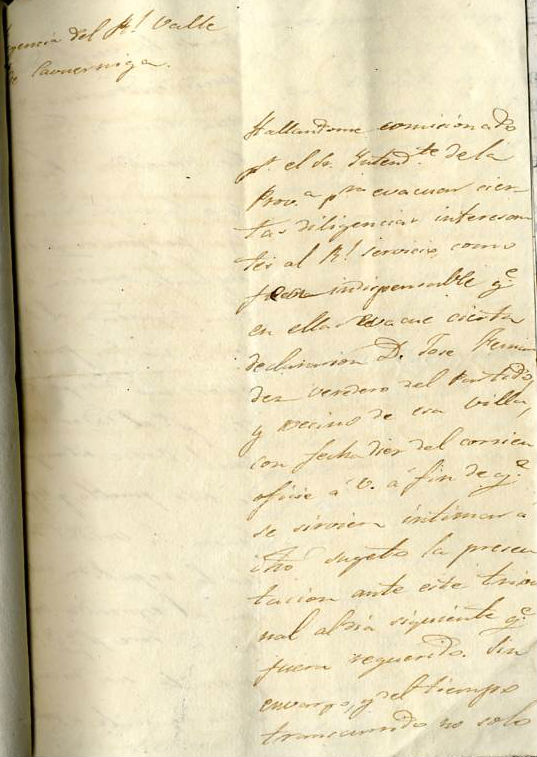 gencia del Rl. Valle
de Cavuerniga.
Hallandome comisionado
pr. el Sr. Intendte. de la
Prova. pra evacuar cier
tas diligencias interesan
tes al Rl. servicio, como
fuera indispensable qe.
en ellas evacue cierta
declaracion D. Jose Fernan
dez veredero del Partido,
y vecino de esa villa,
con fecha diez del corrien
oficie a V. a fin de qe.
se sirviera intimar a
dho sugeto la presen
tacion ante este tribu
nal al dia siguiente qe.
fuera requerido. Sin
envargo, y del tiempo
transcurrido no solo